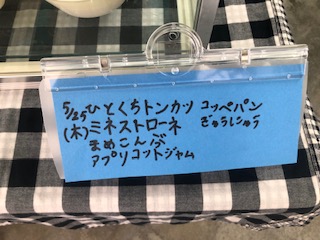 5/25 ひとくちトンカツ コッペパン
(木) ミネストローネ ぎゅうにゅう
まめこんぶ
アプリコットジャム